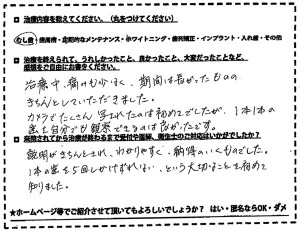 ■ 治療内容を教えてください。（丸をつけてください）
むし歯・歯周病・定期的なメンテナンス・ホワイトニング・歯列矯正・インプラント・入れ歯・その他
■ 治療を終えられて、うれしかったこと、良かったこと、大変だったことなど、
感想をご自由にお書きください。
治療中、痛みも少なく、期間は長かったものの
きちんとしていただきました。
カメラでたくさん写されたのは初めてでしたが、1本1本の
歯を自分でも観察できるのは良かったです。
■ 来院されてから治療が終わるまで受付や医師、衛生士のご対応はいかがでしたか？
説明がきちんとされ、わかりやすく、納得のいくものでした。
1本の歯を5回しかけずれない、という大切なことも初めて
知りました。
★ホームページ等でご紹介させて頂いてもよろしいでしょうか？ はい・匿名ならOK・ダメ